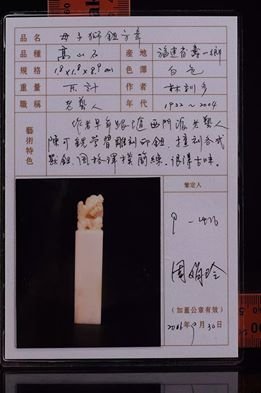 品名 母子獅鈕方章
品種 高山石 產地 福建省壽山鄉
規格 1.8×1.8×8.9cm 色澤 白色
重量 不計 作者 林訓〇
職稱 老藝人 年代 1922－2004
藝術特色
作者早年跟隨西門派老藝人
陳可銳學習雕刻印鈕,擅刻各式
獸鈕,風格渾樸簡練,很得古味。
鑒定人
周
(加蓋公章有效)
年9月30日